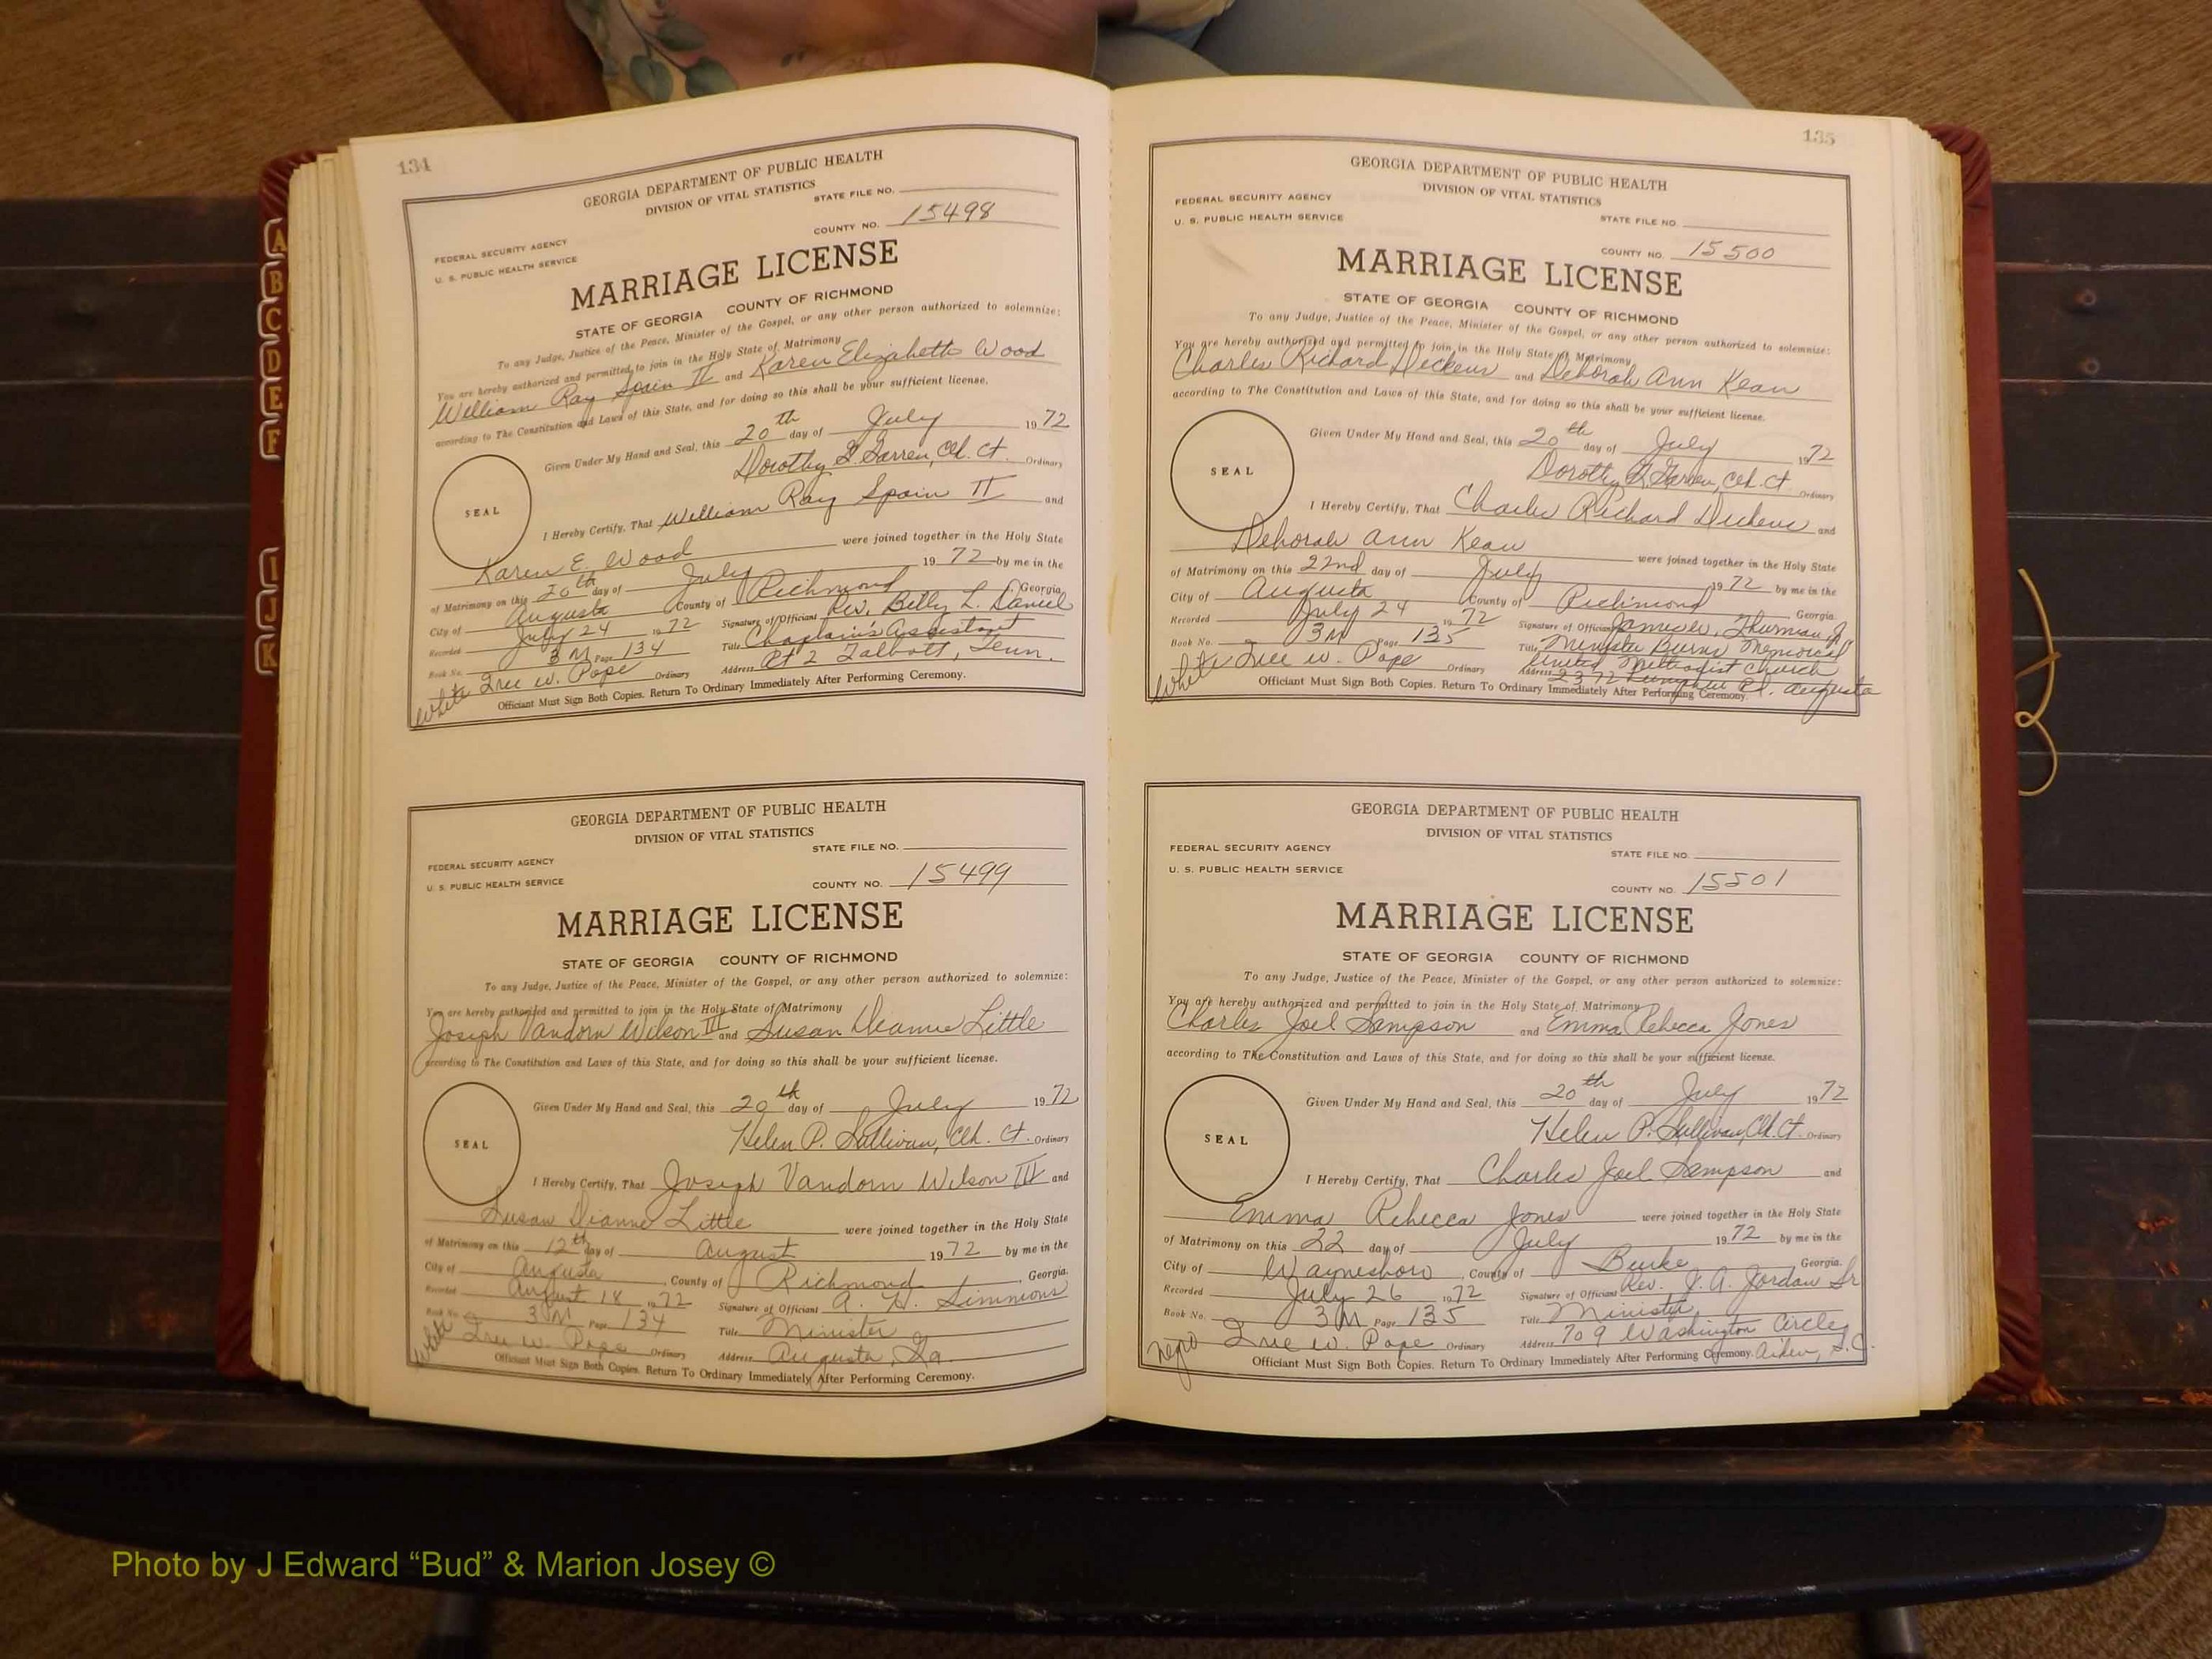 134
GEORGIA DEPARTMENT OF PUBLIC HEALTH
DIVISION OF VITAL STATISTICS
STATE FILE NO.
COUNTY NO. 15498
FEDERAL SECURITY AGENCY
U. S. PUBLIC HEALTH SERVICE
MARRIAGE LICENSE
STATE OF GEORGIA COUNTY OF RICHMOND
To any Judge, Justice of the Peace, Minister of the Gospel, or any other person authorized to solemnize:
You are hereby authorized and permitted to join in the Holy State of Matrimony
William Ray Spain II and Karen Elizabeth Wood
according to The Constitution and Laws of this State, and for doing so this shall be your sufficient license.
Given Under My Hand and Seal, this 20th day of July 1972
Dorothy Garren, Clk. Ct. Ordinary
SEAL
I Hereby Certify, That William Ray Spain II and
Karen E. Wood were joined together in the Holy State
of Matrimony on this 20th day of July 1972 by me in the
City of Augusta County of Richmond, Georgia.
Recorded July 24 1972 Signature of Officiant Rev. Billy L. Daniel
Book No. 3M Page 134 Title Chaplain's Assistant
White Inee W. Pope Ordinary Address Rt 2 Talbott, Tenn.
Officiant Must Sign Both Copies. Return To Ordinary Immediately After Performing Ceremony.
GEORGIA DEPARTMENT OF PUBLIC HEALTH
DIVISION OF VITAL STATISTICS
STATE FILE NO.
FEDERAL SECURITY AGENCY
U. S. PUBLIC HEALTH SERVICE
COUNTY NO. 15499
MARRIAGE LICENSE
STATE OF GEORGIA COUNTY OF RICHMOND
To any Judge, Justice of the Peace, Minister of the Gospel, or any other person authorized to solemnize:
You are hereby authorized and permitted to join in the Holy State of Matrimony
Joseph Vandorn Wilson III and Susan Dianne Little
according to The Constitution and Laws of this State, and for doing so this shall be your sufficient license.
Given Under My Hand and Seal, this 20th day of July 1972
Helen P. Sullivan, Clk. Ct. Ordinary
SEAL
I Hereby Certify, That Joseph Vandorn Wilson III and
Susan Dianne Little were joined together in the Holy State
of Matrimony on this 12th day of August 1972 by me in the
City of Augusta, County of Richmond, Georgia.
Recorded August 18 1972 Signature of Officiant A. H. Simmons
Book No. 3M Page 134 Title Minister
White Inee W. Pope Ordinary Address Augusta, Ga.
Officiant Must Sign Both Copies. Return To Ordinary Immediately After Performing Ceremony.
135
GEORGIA DEPARTMENT OF PUBLIC HEALTH
DIVISION OF VITAL STATISTICS
FEDERAL SECURITY AGENCY
U. S. PUBLIC HEALTH SERVICE
STATE FILE NO.
COUNTY NO. 15500
MARRIAGE LICENSE
STATE OF GEORGIA COUNTY OF RICHMOND
To any Judge, Justice of the Peace, Minister of the Gospel, or any other person authorized to solemnize:
You are hereby authorized and permitted to join in the Holy State of Matrimony
Charles Richard Dickens and Deborah Ann Kean
according to The Constitution and Laws of this State, and for doing so this shall be your sufficient license.
Given Under My Hand and Seal, this 20th day of July 1972
Dorothy Garren, Clk. Ct. Ordinary
SEAL
I Hereby Certify, That Charles Richard Dickens and
Deborah Ann Kean were joined together in the Holy State
of Matrimony on this 22nd day of July 1972 by me in the
City of Augusta County of Richmond Georgia.
Recorded July 24 1972 Signature of Officiant James W. Thurman, Jr
Book No. 3M Page 135 Title Minister Burns Memorial
United Methodist Church
White Inee W. Pope Ordinary Address 2372 Rd. Augusta
Officiant Must Sign Both Copies. Return To Ordinary Immediately After Performing Ceremony.
GEORGIA DEPARTMENT OF PUBLIC HEALTH
DIVISION OF VITAL STATISTICS
FEDERAL SECURITY AGENCY
U. S. PUBLIC HEALTH SERVICE
STATE FILE NO.
COUNTY NO. 15501
MARRIAGE LICENSE
STATE OF GEORGIA COUNTY OF RICHMOND
To any Judge, Justice of the Peace, Minister of the Gospel, or any other person authorized to solemnize:
You are hereby authorized and permitted to join in the Holy State of Matrimony
Charles Joel Sampson and Emma Rebecca Jones
according to The Constitution and Laws of this State, and for doing so this shall be your sufficient license.
Given Under My Hand and Seal, this 20th day of July 1972
Helen P. Sullivan, Clk. Ct. Ordinary
SEAL
I Hereby Certify, That Charles Joel Sampson and
Emma Rebecca Jones were joined together in the Holy State
of Matrimony on this 22 day of July 1972 by me in the
City of Waynesboro, County of Burke Georgia.
Recorded July 26 1972 Signature of Officiant Rev. J. A. Jordan Sr
Book No. 3M Page 135 Title Minister
Negro Inee W. Pope Ordinary Address 709 Washington Circle, Aiken, S.C.
Officiant Must Sign Both Copies. Return To Ordinary Immediately After Performing Ceremony.
A
B
C
D
E
F
I
J
K
Photo by J Edward “Bud” & Marion Josey ©